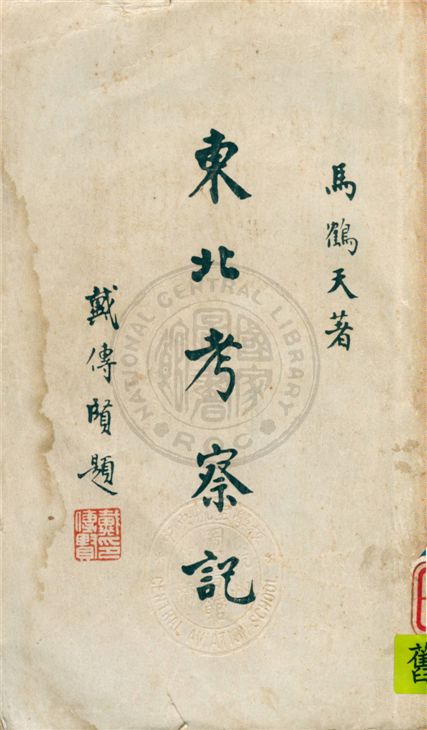 馬鶴天著
東北考察記
戴傳賢題
戴印
傳賢
NATIONAL CENTRAL LIBRARY
R.O.C.
國家圖書館
CENTRAL AVIATION SCHOOL
舊